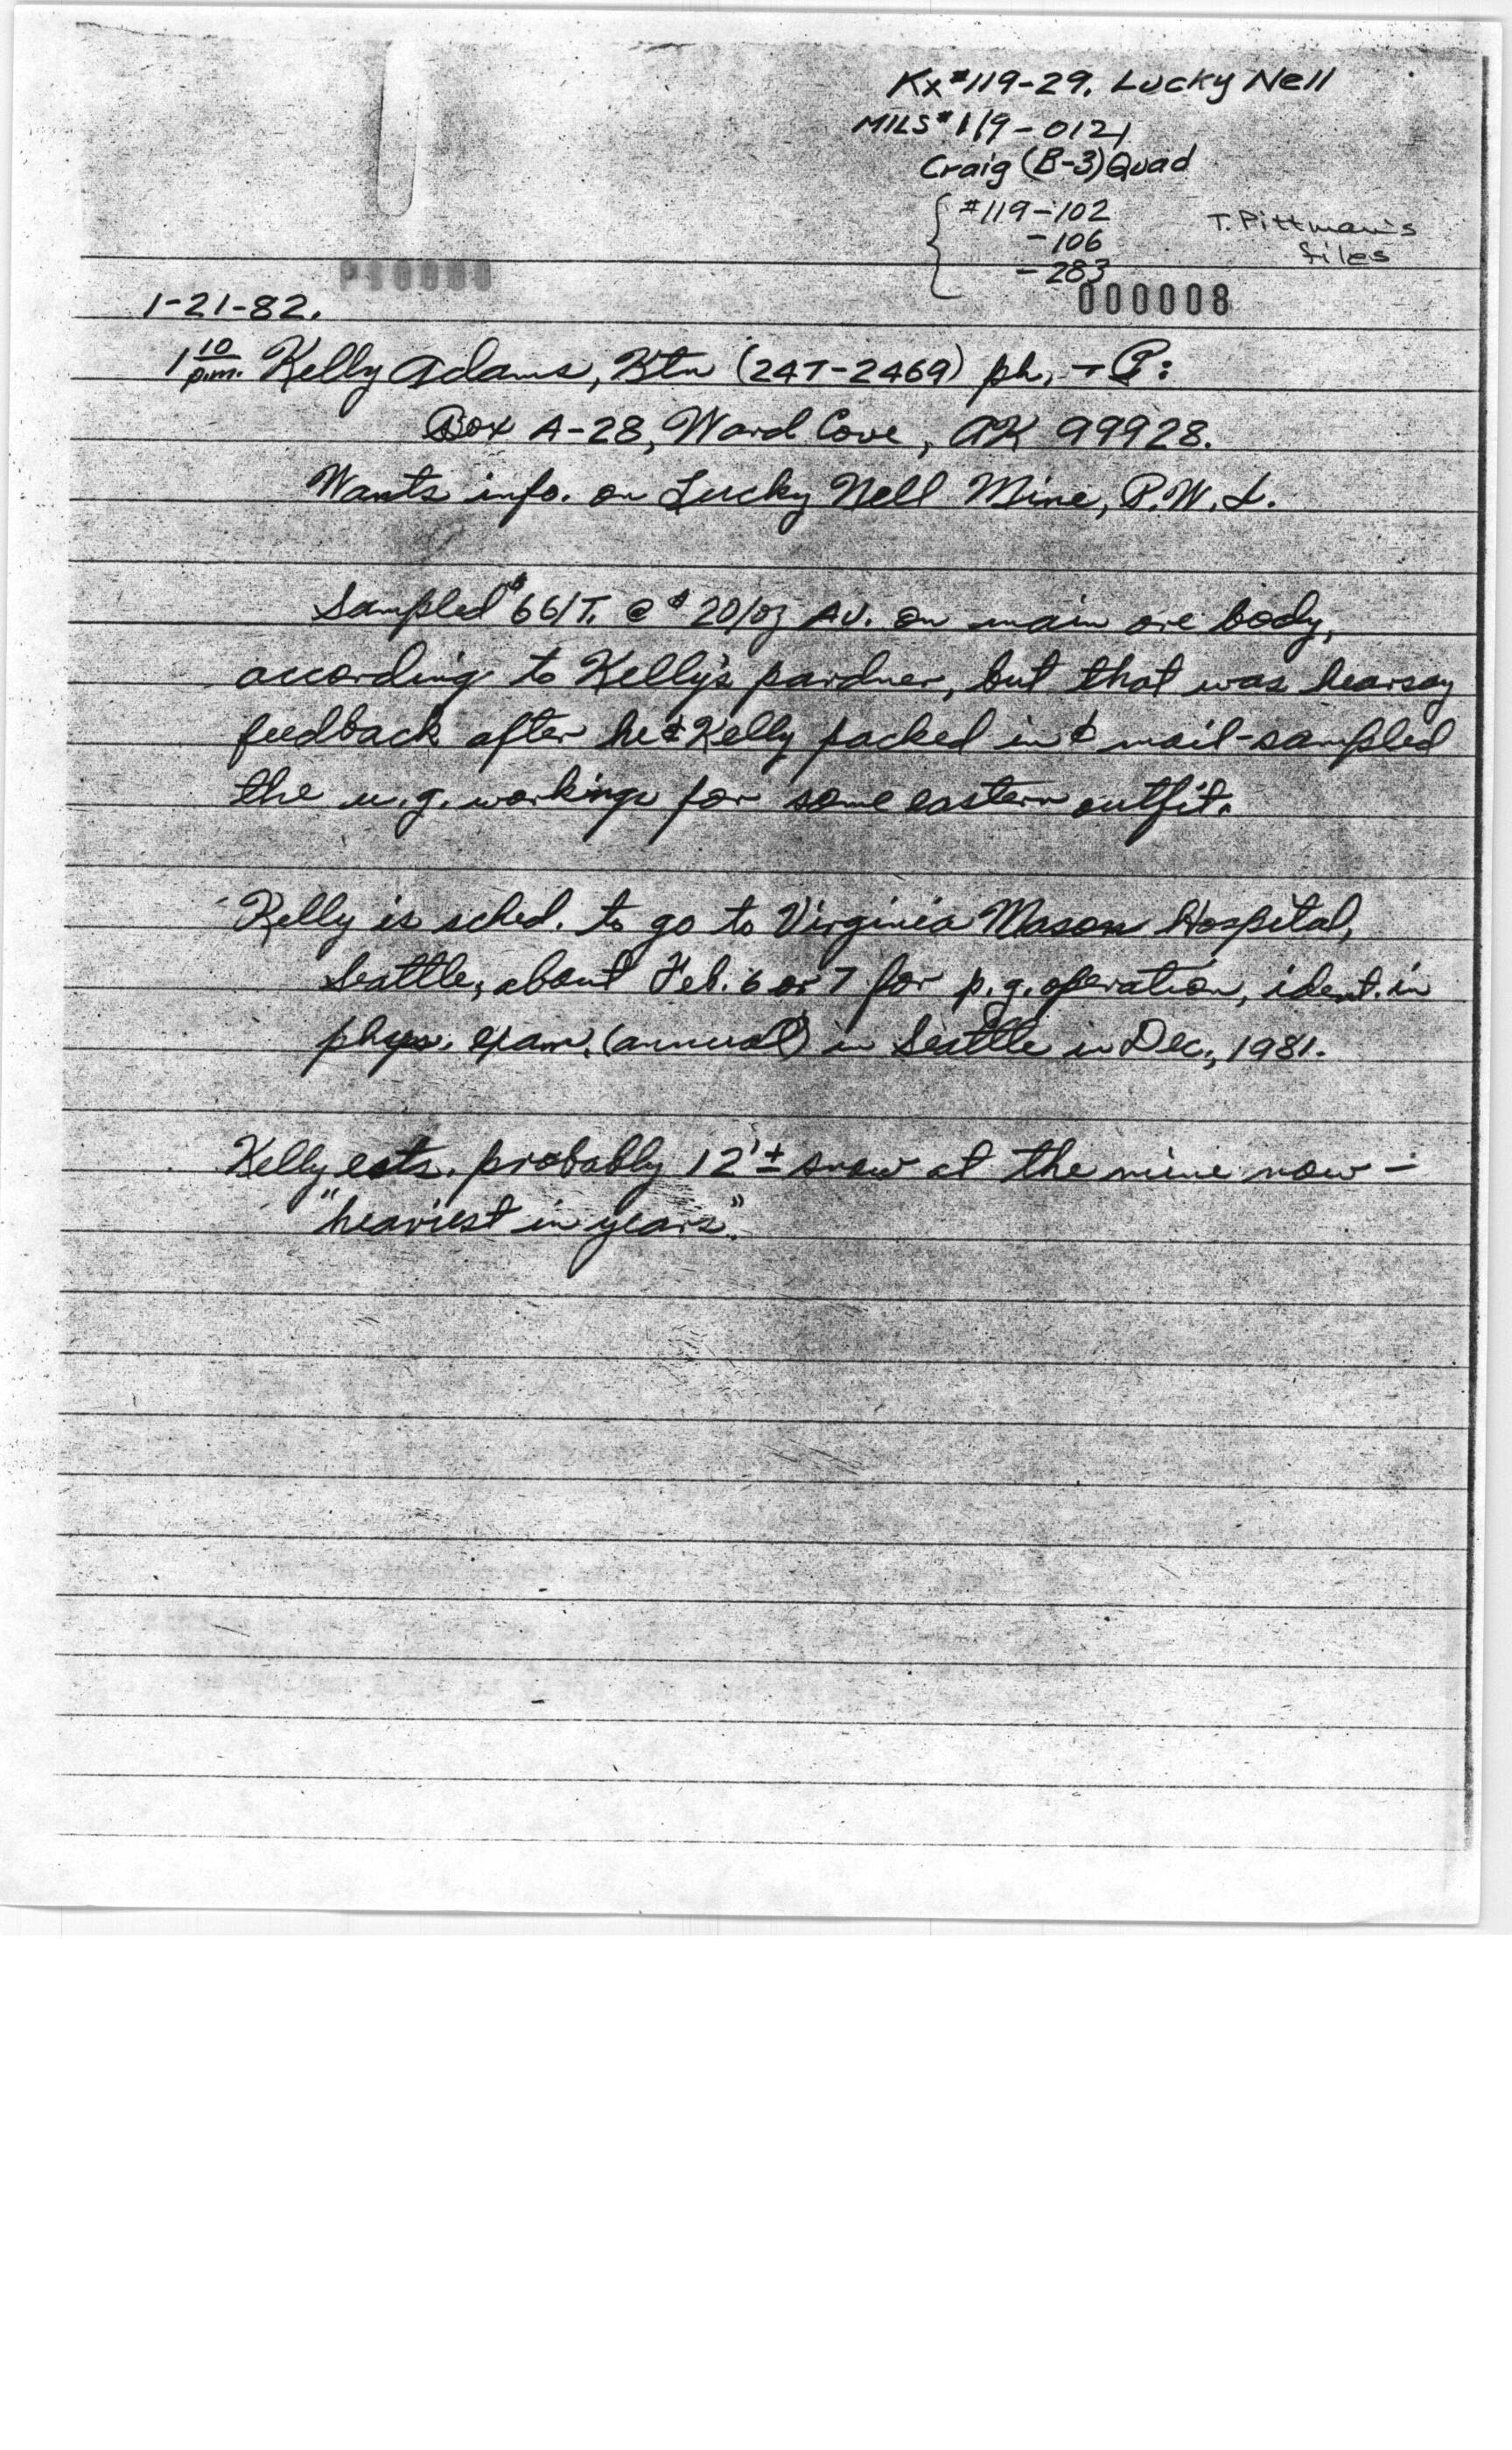 Kx #119-29. Lucky Nell
MILS # 119-0121
Craig (B-3) Quad
{ #119-102
-106
-283
T. Pittman's
files
000008
1-21-82.
1 10 p.m. Kelly Adams, Ktn (247-2469) ph.
Box A-28, Ward Cove, AK 99928.
Wants info. on Lucky Nell Mine, P.W.I.
Sampled $66/T. @ $20/oz AU. on main ore body,
according to Kelly's pardner, but that was hearsay
feedback after he & Kelly packed in & mail-sampled
the u.g. workings for some eastern outfit.
Kelly is sched. to go to Virginia Mason Hospital,
Seattle, about Feb. 6 or 7 for p.g. operation, ident. in
phys. exam. (annual) in Seattle in Dec., 1981.
Kelly ests. probably 12' ± snow at the mine now –
"heaviest in years."